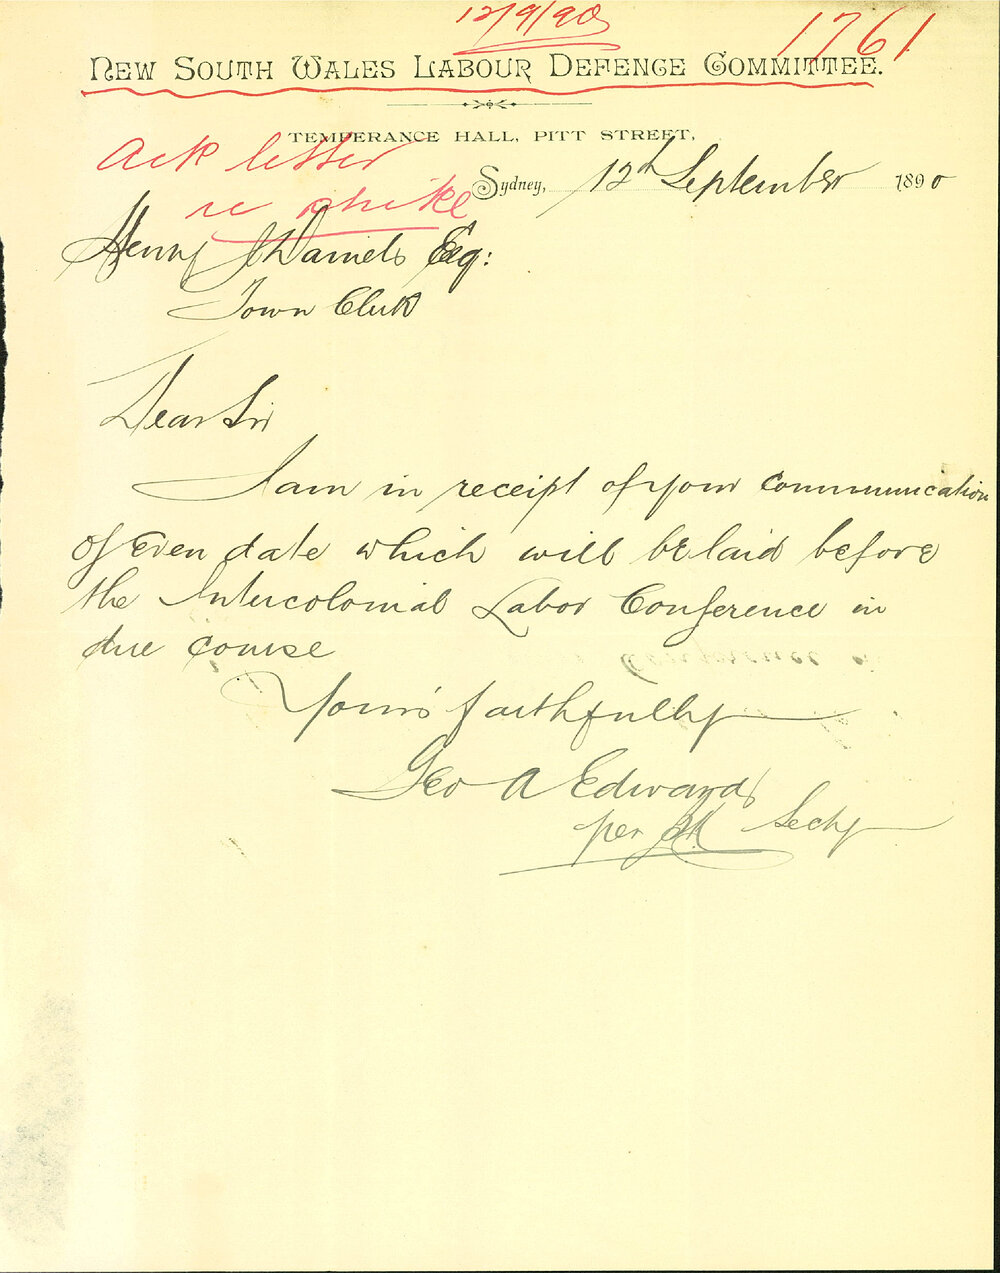 12/9/90
1761
NEW SOUTH WALES LABOUR DEFENCE COMMITTEE.
TEMPERANCE HALL, PITT STREET,
Ack letter
re strike
Sydney, 12th September 1890
Henry J Daniels Esq:
Town Clerk
Dear Sir
I am in receipt of your communication
of even date which will be laid before
the Intercolonial Labor Conference in
due course
Your's faithfully
Geo A Edwards
per Secty